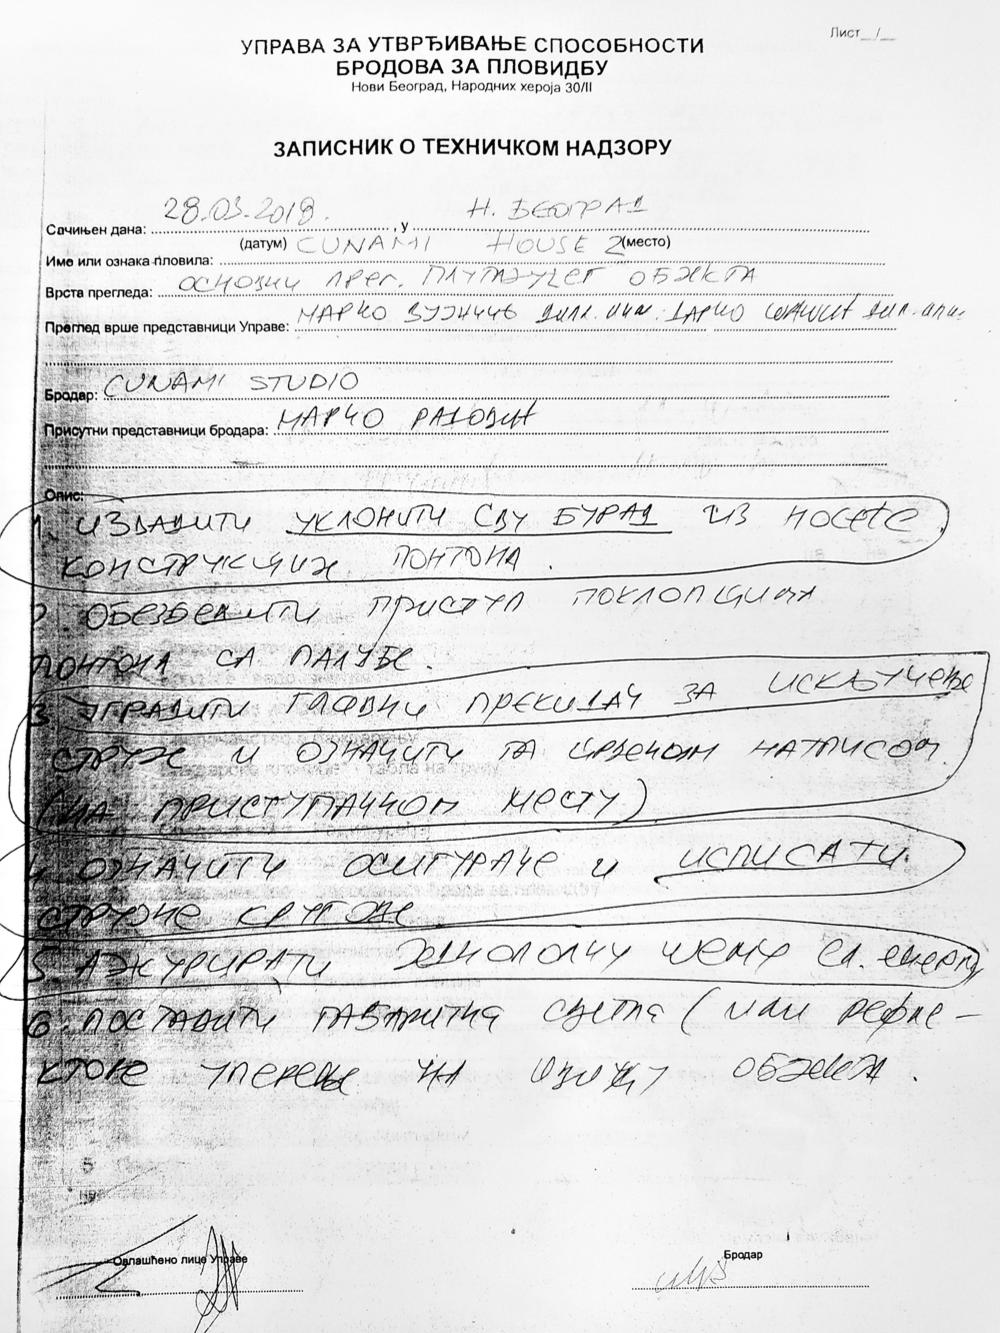 Лист__/__
УПРАВА ЗА УТВРЂИВАЊЕ СПОСОБНОСТИ
БРОДОВА ЗА ПЛОВИДБУ
Нови Београд, Народних хероја 30/II
ЗАПИСНИК О ТЕХНИЧКОМ НАДЗОРУ
Сачињен дана: 28.03.2018. , у Н. БЕОГРАД
(датум) (место)
Име или ознака пловила: CUNAMI HOUSE 2
Врста прегледа: ОСНОВНИ ПРЕГ. ПЛУТАЈУЋЕГ ОБЈЕКТА
Преглед врше представници Управе: МАРКО ДИПЛ. ИНЖ. ДАРКО ДИПЛ. ИНЖ.
Бродар: CUNAMI STUDIO
Присутни представници бродара: МАРКО РАДОВИЋ
Опис:
1. ИЗВАДИТИ УКЛОНИТИ СВУ БУРАД ИЗ НОСЕЋЕ
КОНСТРУКЦИЈЕ ПОНТОНА.
2. ОБЕЗБЕДИТИ ПРИСТУП ПОКЛОПЦИМА
ПОНТОНА СА ПАЛУБЕ.
3. УГРАДИТИ ГЛАВНИ ПРЕКИДАЧ ЗА ИСКЉУЧЕЊЕ
СТРУЈЕ И ОЗНАЧИТИ ГА ЦРВЕНОМ НАТПИСОМ
(НА ПРИСТУПАЧНОМ МЕСТУ)
4. ОЗНАЧИТИ ОСИГУРАЧЕ И ИСПИСАТИ
СТРУЈНЕ КРУГОВЕ
5. АЖУРИРАТИ ЈЕДНОПОЛНУ ШЕМУ ЕЛ. ЕНЕРГ
6. ПОСТАВИТИ ГАБАРИТНА СВЕТЛА (ИЛИ РЕФЛЕ-
КТОРЕ УПЕРЕНЕ НА ОБЈЕКТА.
Овлашћено лице Управе
Бродар